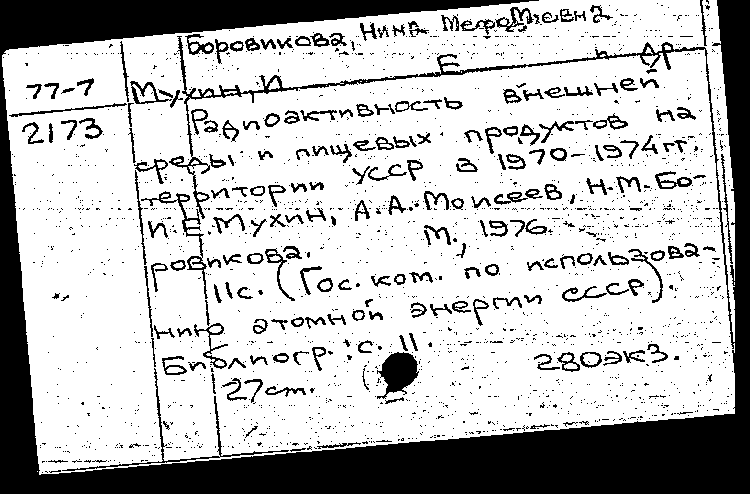 Боровикова, Нина Мефодиевна
77-7 Мухин, И Е и др
2173 Радиоактивность внешней
среды и пищевых продуктов на
территории УССР в 1970-1974гг.
И.Е.Мухин, А.А.Моисеев, Н.М.Бо-
ровикова. М., 1976.
11с. (Гос. ком. по использова-
нию атомной энергии СССР).
Библиогр.: с. 11.
27см. 280экз.